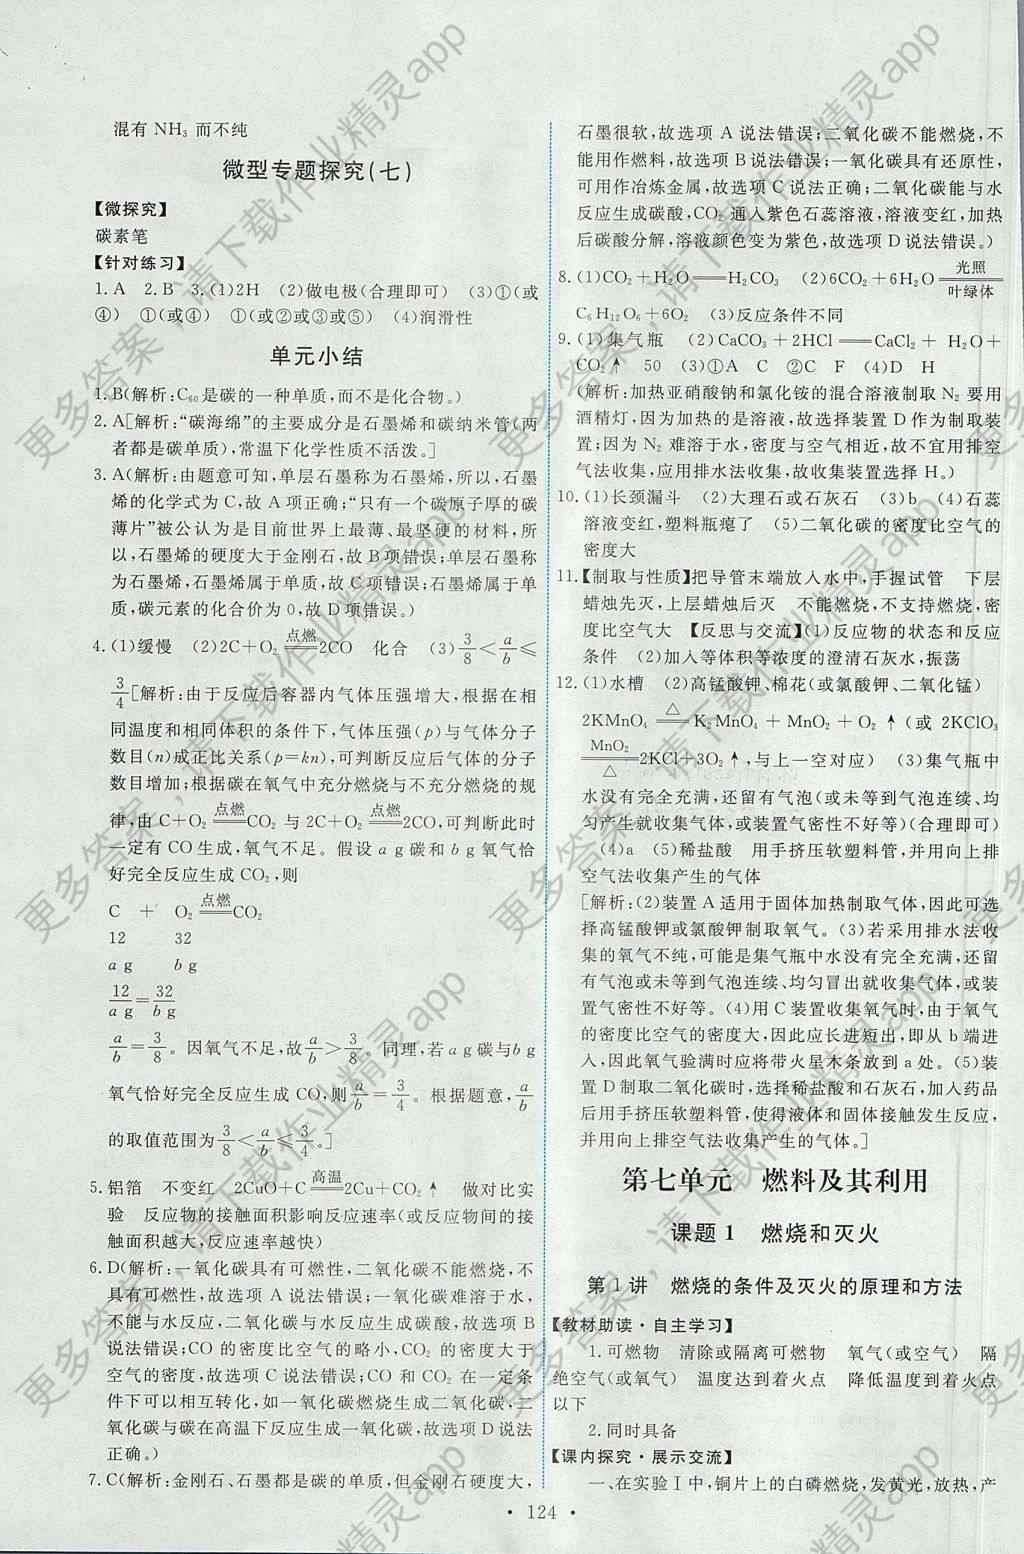 混有 NH₃ 而不纯
微型专题探究(七)
【微探究】
碳素笔
【针对练习】
1. A 2. B 3. (1)2H (2)做电极(合理即可) (3)①(或
④) ①(或④) ①(或②或③或⑤) (4)润滑性
单元小结
1. B(解析:C₆₀是碳的一种单质,而不是化合物。)
2. A[解析:“碳海绵”的主要成分是石墨烯和碳纳米管(两
者都是碳单质),常温下化学性质不活泼。]
3. A(解析:由题意可知,单层石墨称为石墨烯,所以,石墨
烯的化学式为 C,故 A 项正确;“只有一个碳原子厚的碳
薄片”被公认为是目前世界上最薄、最坚硬的材料,所
以,石墨烯的硬度大于金刚石,故 B 项错误;单层石墨称
为石墨烯,石墨烯属于单质,故 C 项错误;石墨烯属于单
质,碳元素的化合价为 0,故 D 项错误。)
4. (1)缓慢 (2)2C+O₂ =点燃= 2CO 化合 (3)3/8<a/b≤
3/4[解析:由于反应后容器内气体压强增大,根据在相
同温度和相同体积的条件下,气体压强(p)与气体分子
数目(n)成正比关系(p=kn),可判断反应后气体的分子
数目增加;根据碳在氧气中充分燃烧与不充分燃烧的规
律,由 C+O₂ =点燃= CO₂ 与 2C+O₂ =点燃= 2CO,可判断此时
一定有 CO 生成,氧气不足。假设 a g 碳和 b g 氧气恰
好完全反应生成 CO₂,则
C + O₂ =点燃= CO₂
12 32
a g b g
12/a g=32/b g
a/b=3/8。因氧气不足,故a/b>3/8。同理,若 a g 碳与 b g
氧气恰好完全反应生成 CO,则a/b=3/4。根据题意,a/b
的取值范围为3/8<a/b≤3/4。]
5. 铝箔 不变红 2CuO+C =高温= 2Cu+CO₂↑ 做对比实
验 反应物的接触面积影响反应速率(或反应物间的接
触面积越大,反应速率越快)
6. D(解析:一氧化碳具有可燃性,二氧化碳不能燃烧,不
具有可燃性,故选项 A 说法错误;一氧化碳难溶于水,
不能与水反应,二氧化碳与水反应生成碳酸,故选项 B
说法错误;CO 的密度比空气的略小,CO₂ 的密度大于
空气的密度,故选项 C 说法错误;CO 和 CO₂ 在一定条
件下可以相互转化,如一氧化碳燃烧生成二氧化碳,二
氧化碳与碳在高温下反应生成一氧化碳,故选项 D 说法
正确。)
7. C(解析:金刚石、石墨都是碳的单质,但金刚石硬度大,
石墨很软,故选项 A 说法错误;二氧化碳不能燃烧,不
能用作燃料,故选项 B 说法错误;一氧化碳具有还原性,
可用作冶炼金属,故选项 C 说法正确;二氧化碳能与水
反应生成碳酸,CO₂ 通入紫色石蕊溶液,溶液变红,加热
后碳酸分解,溶液颜色变为紫色,故选项 D 说法错误。)
8. (1)CO₂+H₂O══H₂CO₃ (2)6CO₂+6H₂O =光照/叶绿体=
C₆H₁₂O₆+6O₂ (3)反应条件不同
9. (1)集气瓶 (2)CaCO₃+2HCl══CaCl₂+H₂O+
CO₂↑ 50 (3)①A C ②C F (4)D H
(解析:加热亚硝酸钠和氯化铵的混合溶液制取 N₂ 要用
酒精灯,因为加热的是溶液,故选择装置 D 作为制取装
置;因为 N₂ 难溶于水,密度与空气相近,故不宜用排空
气法收集,应用排水法收集,故收集装置选择 H。)
10. (1)长颈漏斗 (2)大理石或石灰石 (3)b (4)石蕊
溶液变红,塑料瓶瘪了 (5)二氧化碳的密度比空气的
密度大
11. 【制取与性质】把导管末端放入水中,手握试管 下层
蜡烛先灭,上层蜡烛后灭 不能燃烧,不支持燃烧,密
度比空气大 【反思与交流】(1)反应物的状态和反应
条件 (2)加入等体积等浓度的澄清石灰水,振荡
12. (1)水槽 (2)高锰酸钾、棉花(或氯酸钾、二氧化锰)
2KMnO₄ =△= K₂MnO₄+MnO₂+O₂↑(或 2KClO₃
=MnO₂/△= 2KCl+3O₂↑,与上一空对应) (3)集气瓶中
水没有完全充满,还留有气泡(或未等到气泡连续、均
匀产生就收集气体,或装置气密性不好等)(合理即可)
(4)a (5)稀盐酸 用手挤压软塑料管,并用向上排
空气法收集产生的气体
[解析:(2)装置 A 适用于固体加热制取气体,因此可选
择高锰酸钾或氯酸钾制取氧气。(3)若采用排水法收
集的氧气不纯,可能是集气瓶中水没有完全充满,还留
有气泡或未等到气泡连续、均匀冒出就收集气体,或装
置气密性不好等。(4)用 C 装置收集氧气时,由于氧气
的密度比空气的密度大,因此应长进短出,即从 b 端进
入,因此氧气验满时应将带火星木条放到 a 处。(5)装
置 D 制取二氧化碳时,选择稀盐酸和石灰石,加入药品
后用手挤压软塑料管,使得液体和固体接触发生反应,
并用向上排空气法收集产生的气体。]
第七单元 燃料及其利用
课题 1 燃烧和灭火
第 1 讲 燃烧的条件及灭火的原理和方法
【教材助读·自主学习】
1. 可燃物 清除或隔离可燃物 氧气(或空气) 隔
绝空气(或氧气) 温度达到着火点 降低温度到着火点
以下
2. 同时具备
【课内探究·展示交流】
一、在实验Ⅰ中,铜片上的白磷燃烧,发黄光,放热,产
· 124 ·
更多答案,请下载作业精灵app